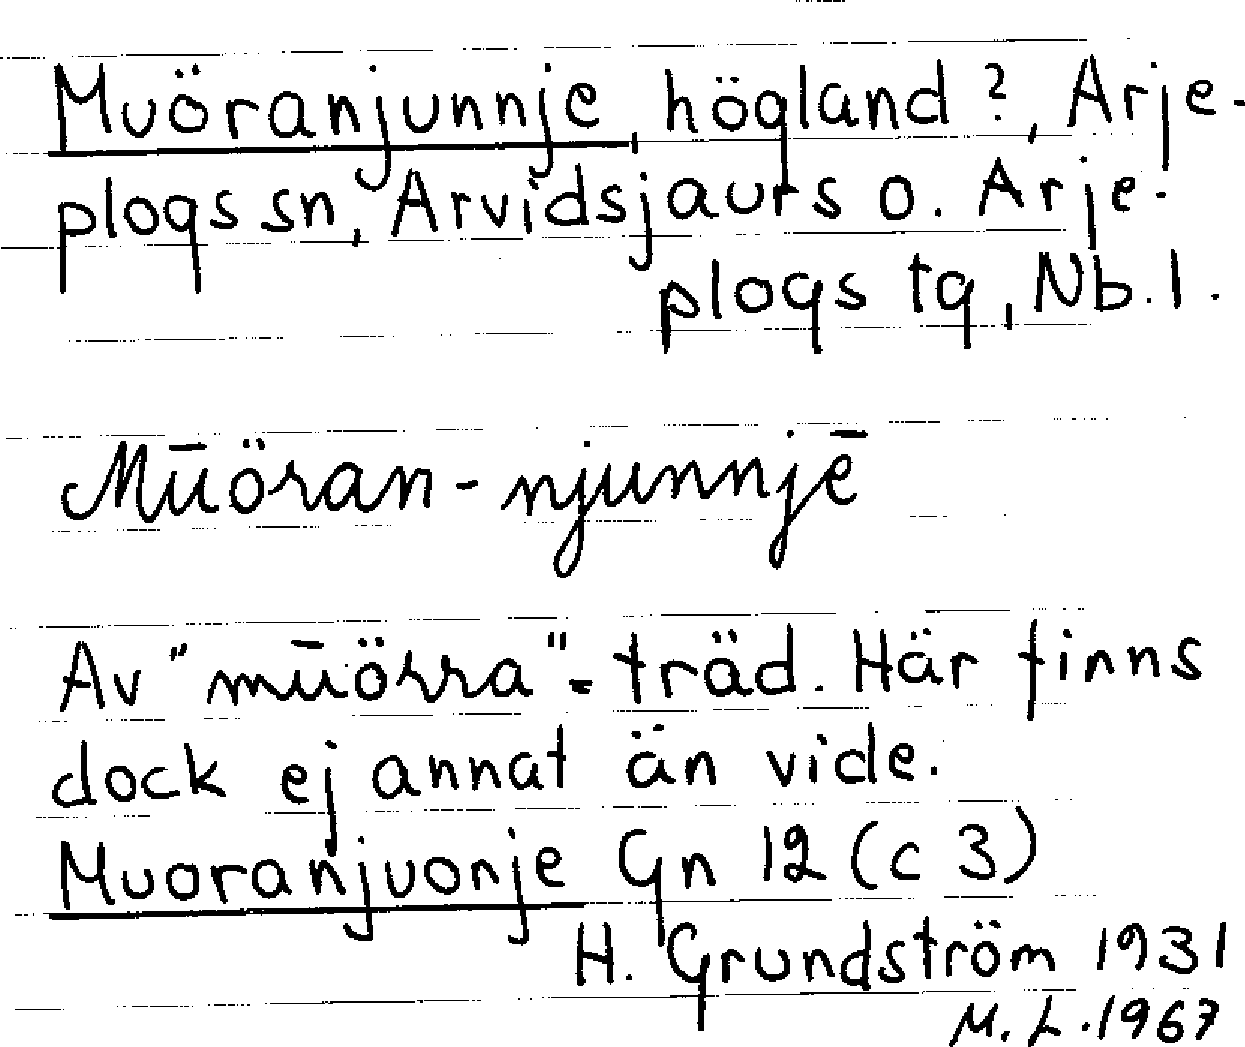 Muöranjunnje, högland?, Arje-
plogs sn, Arvidsjaurs o. Arje-
plogs tg, Nb. l.
Mūöran-njunnjē
Av "mūörra" = träd. Här finns
dock ej annat än vide.
Muoranjuonje Gn 12 (c 3)
H. Grundström 1931
M. L. 1967